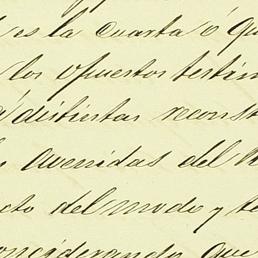 es la cuarta ó qu
los opuestos testim
distintas reconst
avenidas del
cto del modo y te
considerando que